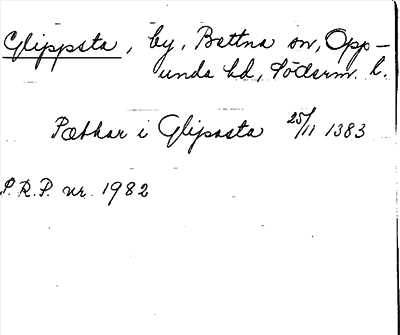 Glippsta, by, Bettna sn, Opp-
unda hd, Söderm. l.
Pætkar i Glipasta 25/11 1383
S.R.P. nr. 1982